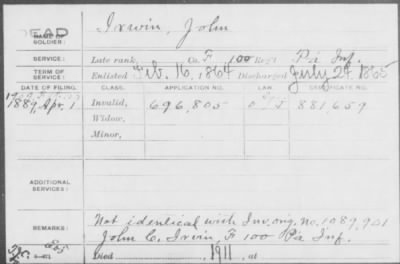 DEAD
NAME OF SOLDIER:
Irwin, John
SERVICE:
Late rank, Co. F, 100 Reg't Pa Inf.
TERM OF SERVICE:
Enlisted Feb. 16, 1864 Discharged July 24, 1865
DATE OF FILING. CLASS. APPLICATION NO. LAW. CERTIFICATE NO.
1889, Apr. 1 Invalid, 696,805 881659
Widow,
Minor,
ADDITIONAL SERVICES:
REMARKS:
Not identical with Inv. orig. no. 1089,901
John C. Irwin, F 100 Pa Inf.
Died 1911, at